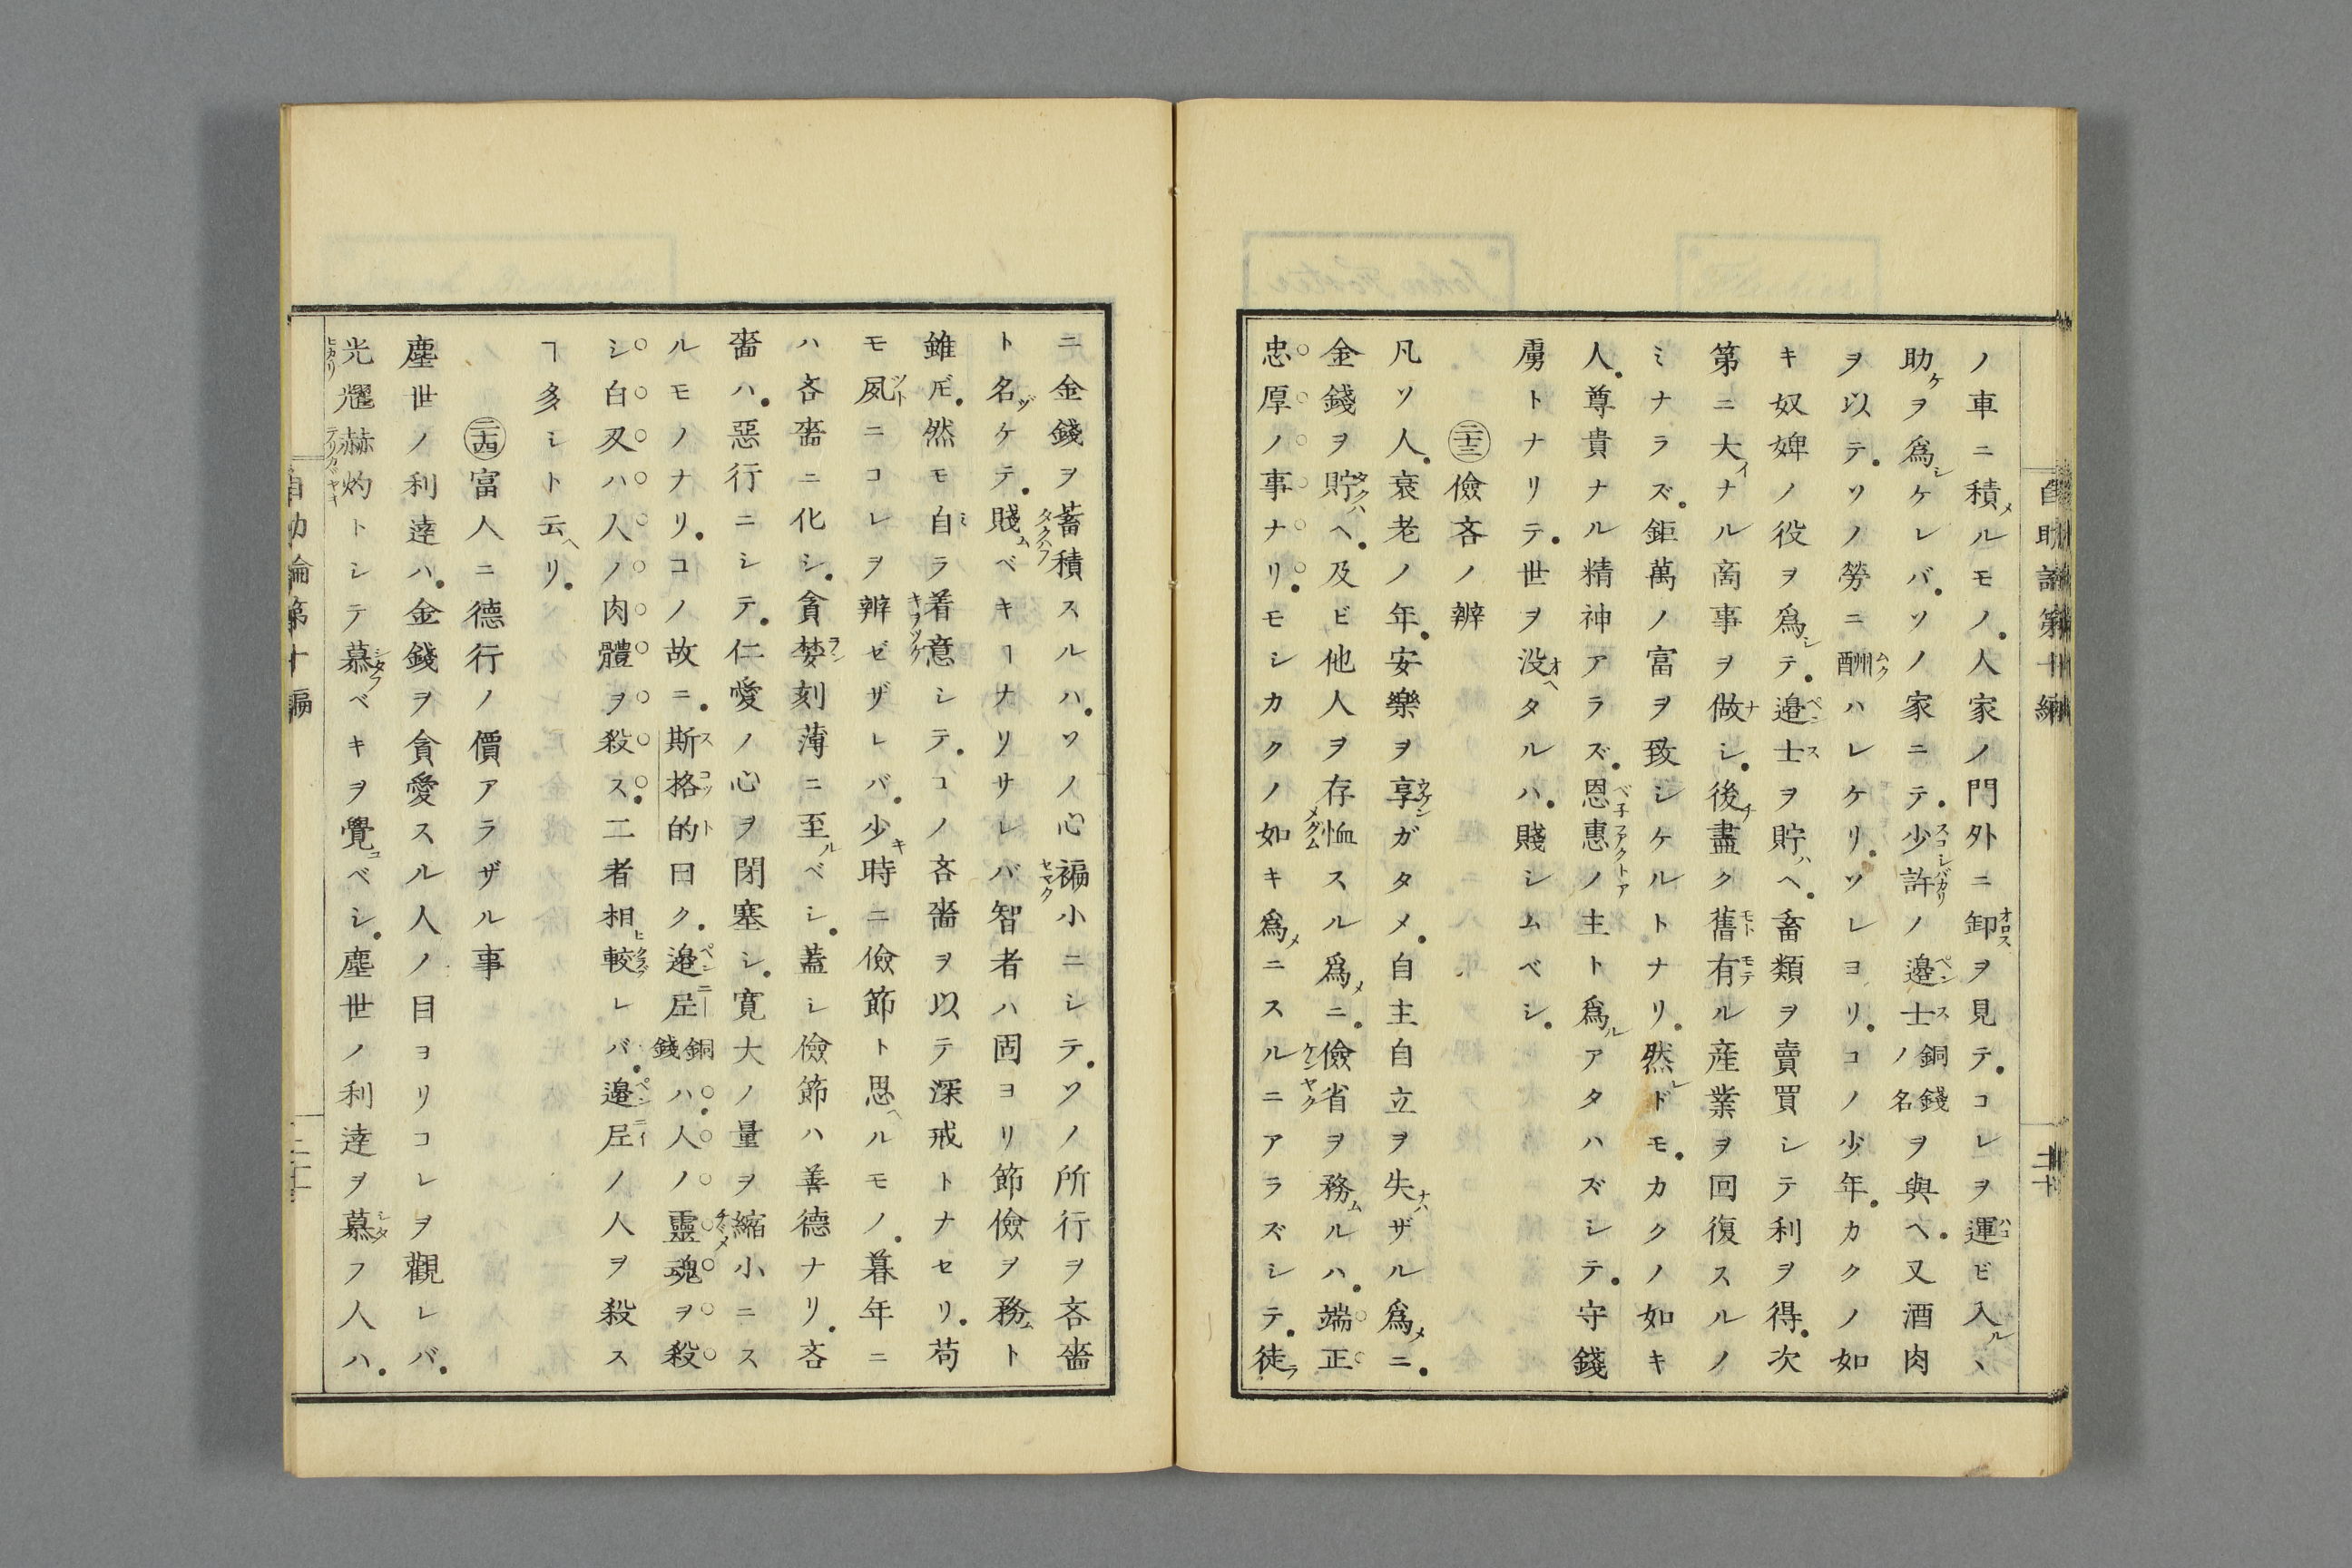 ノ車ニ積ルモノ。人家ノ門外ニ卸ヲ見テ。コレヲ運ビ入ルヽ
助ケヲ爲シケレバ。ソノ家ニテ。少許ノ邉士銅錢ノ名ヲ與ヘ。又酒肉
ヲ以テ。ソノ勞ニ酬ハレケリ。ソレヨリ。コノ少年。カクノ如
キ奴婢ノ役ヲ爲シテ。邉士ヲ貯ヘ。畜類ヲ賣買シテ利ヲ得。次
第ニ大ナル商事ヲ做シ。後盡ク舊有ル産業ヲ回復スルノ
ミナラズ。鉅萬ノ富ヲ致シケルトナリ。然ドモ。カクノ如キ
人。尊貴ナル精神アラズ。恩惠ノ主ト爲ルアタハズシテ。守錢
虜トナリテ。世ヲ没タルハ。賤シムベシ。
㊁㊂ 儉吝ノ辨
凡ソ人。衰老ノ年。安樂ヲ享ガタメ。自主自立ヲ失ザル爲ニ。
金錢ヲ貯ヘ。及ビ他人ヲ存恤スル爲ニ。儉省ヲ務ルハ。端正
忠厚ノ事ナリ。モシカクノ如キ爲ニスルニアラズシテ。徒
ニ金錢ヲ蓄積スルハ。ソノ心褊小ニシテ。ソノ所行ヲ吝嗇
ト名ヅケテ。賤ムベキヿナリサレバ智者ハ固ヨリ節儉ヲ務ト
雖ドモ。然モ自ラ着意シテ。コノ吝嗇ヲ以テ深戒トナセリ。苟
モ夙ニコレヲ辨ゼザレバ。少時ニ儉節ト思ヘルモノ。暮年ニ
ハ吝嗇ニ化シ。貪婪刻薄ニ至ルベシ。蓋シ儉節ハ善德ナリ。吝
嗇ハ。惡行ニシテ。仁愛ノ心ヲ閉塞シ。寛大ノ量ヲ縮小ニス
ルモノナリ。コノ故ニ。斯格的曰ク。邉㞐銅錢ハ。人ノ靈魂ヲ殺
シ白刄ハ人ノ肉體ヲ殺ス。二者相較レバ。邉㞐ノ人ヲ殺ス
ヿ多シト云ヘリ。
二十四 富人ニ德行ノ價アラザル事
塵世ノ利達ハ。金錢ヲ貪愛スル人ノ目ヨリコレヲ觀レバ。
光耀赫灼トシテ慕ベキヲ覺ベシ。塵世ノ利達ヲ慕フ人ハ。
自助論第十編